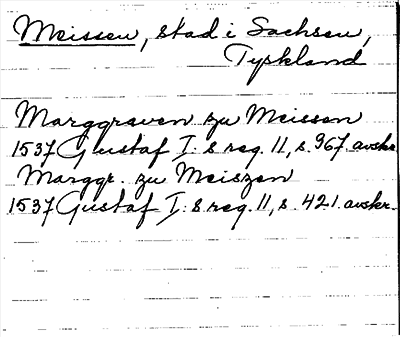 Meissen, stad i Sachsen,
Tyskland
Marggraven zu Meissen
1537 Gustaf I:s reg. 11, s. 367. avskr.
Marggr. zu Meiszen
1537 Gustaf I:s reg. 11, s. 421. avskr.